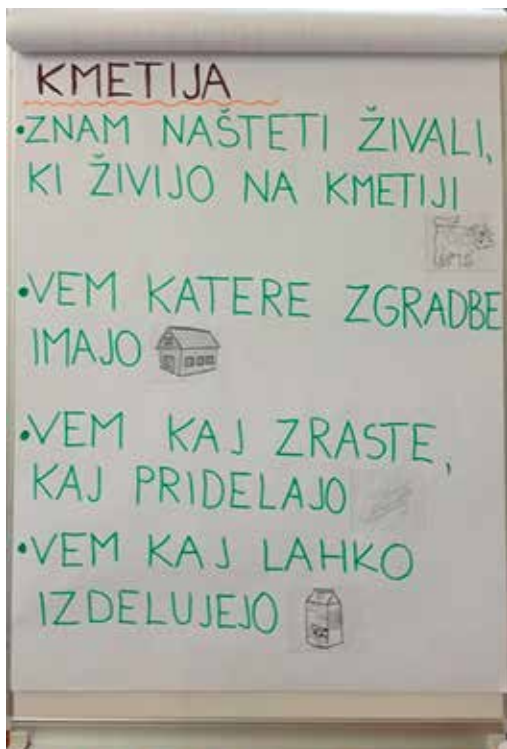 KMETIJA
•ZNAM NAŠTETI ŽIVALI,
KI ŽIVIJO NA KMETIJI
•VEM KATERE ZGRADBE
IMAJO
•VEM KAJ ZRASTE,
KAJ PRIDELAJO
•VEM KAJ LAHKO
IZDELUJEJO